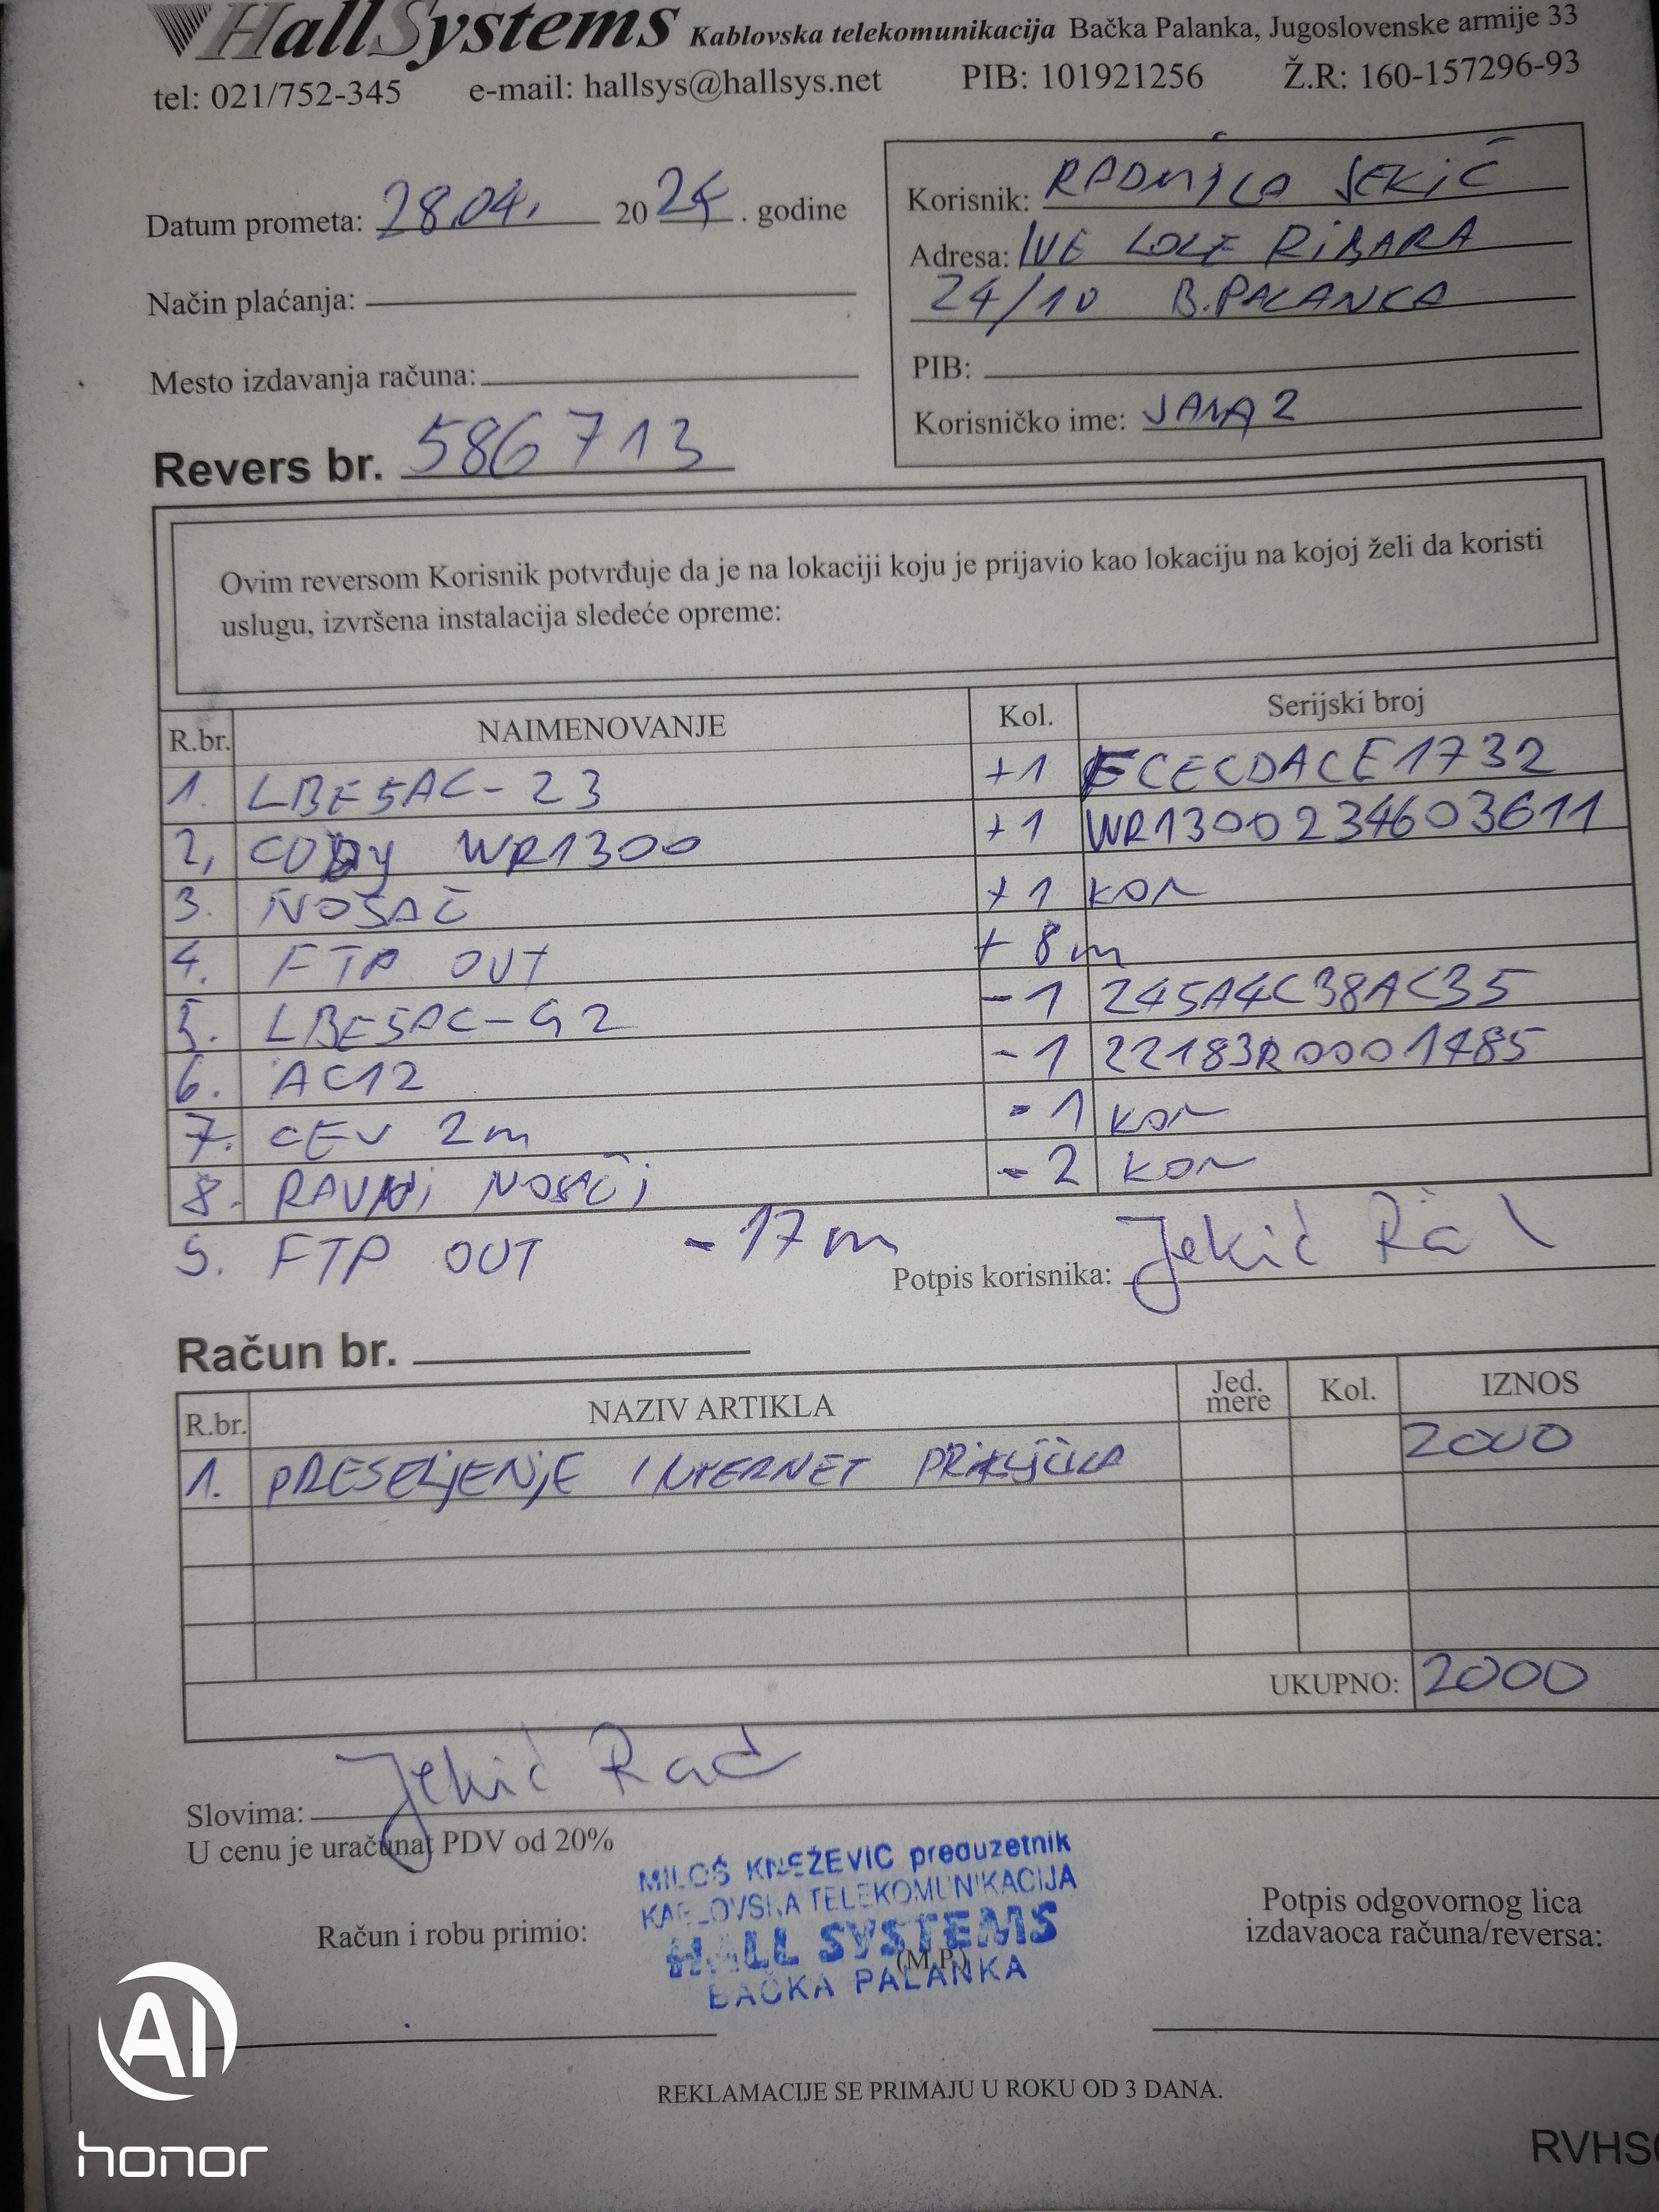 HallSystems Kablovska telekomunikacija Bačka Palanka, Jugoslovenske armije 33
tel: 021/752-345 e-mail: hallsys@hallsys.net PIB: 101921256 Ž.R: 160-157296-93
Datum prometa: 28.04. 20 24. godine
Način plaćanja:
Mesto izdavanja računa:
Revers br. 586713
Korisnik: RADMILA JEKIĆ
Adresa: IVE LOLE RIBARA
24/10 B.PALANKA
PIB:
Korisničko ime: JANA2
Ovim reversom Korisnik potvrđuje da je na lokaciji koju je prijavio kao lokaciju na kojoj želi da koristi
uslugu, izvršena instalacija sledeće opreme:
R.br. NAIMENOVANJE Kol. Serijski broj
1. LBE5AC-23 +1 FCECDACE1732
2, CUDY WR1300 +1 WR1300234603611
3. NOSAČ +1 KOM
4. FTP OUT + 8m
5. LBE5AC-G2 -1 245A4C38AC35
6. AC12 -1 22183R0001485
7. CEV 2m -1 KOM
8. RAVNI NOSAČI -2 KOM
9. FTP OUT -17m
Potpis korisnika: Jekić
Račun br.
R.br. NAZIV ARTIKLA Jed. mere Kol. IZNOS
1. PRESELJENJE INTERNET PRIKLJUČKA 2000
UKUPNO: 2000
Jekić Rad
Slovima:
U cenu je uračunat PDV od 20%
MILOŠ KNEŽEVIĆ preduzetnik
KABLOVSKA TELEKOMUNIKACIJA
HALL SYSTEMS
(M.P.)
BAČKA PALANKA
Račun i robu primio:
Potpis odgovornog lica
izdavaoca računa/reversa:
REKLAMACIJE SE PRIMAJU U ROKU OD 3 DANA.
AI
honor
RVHS